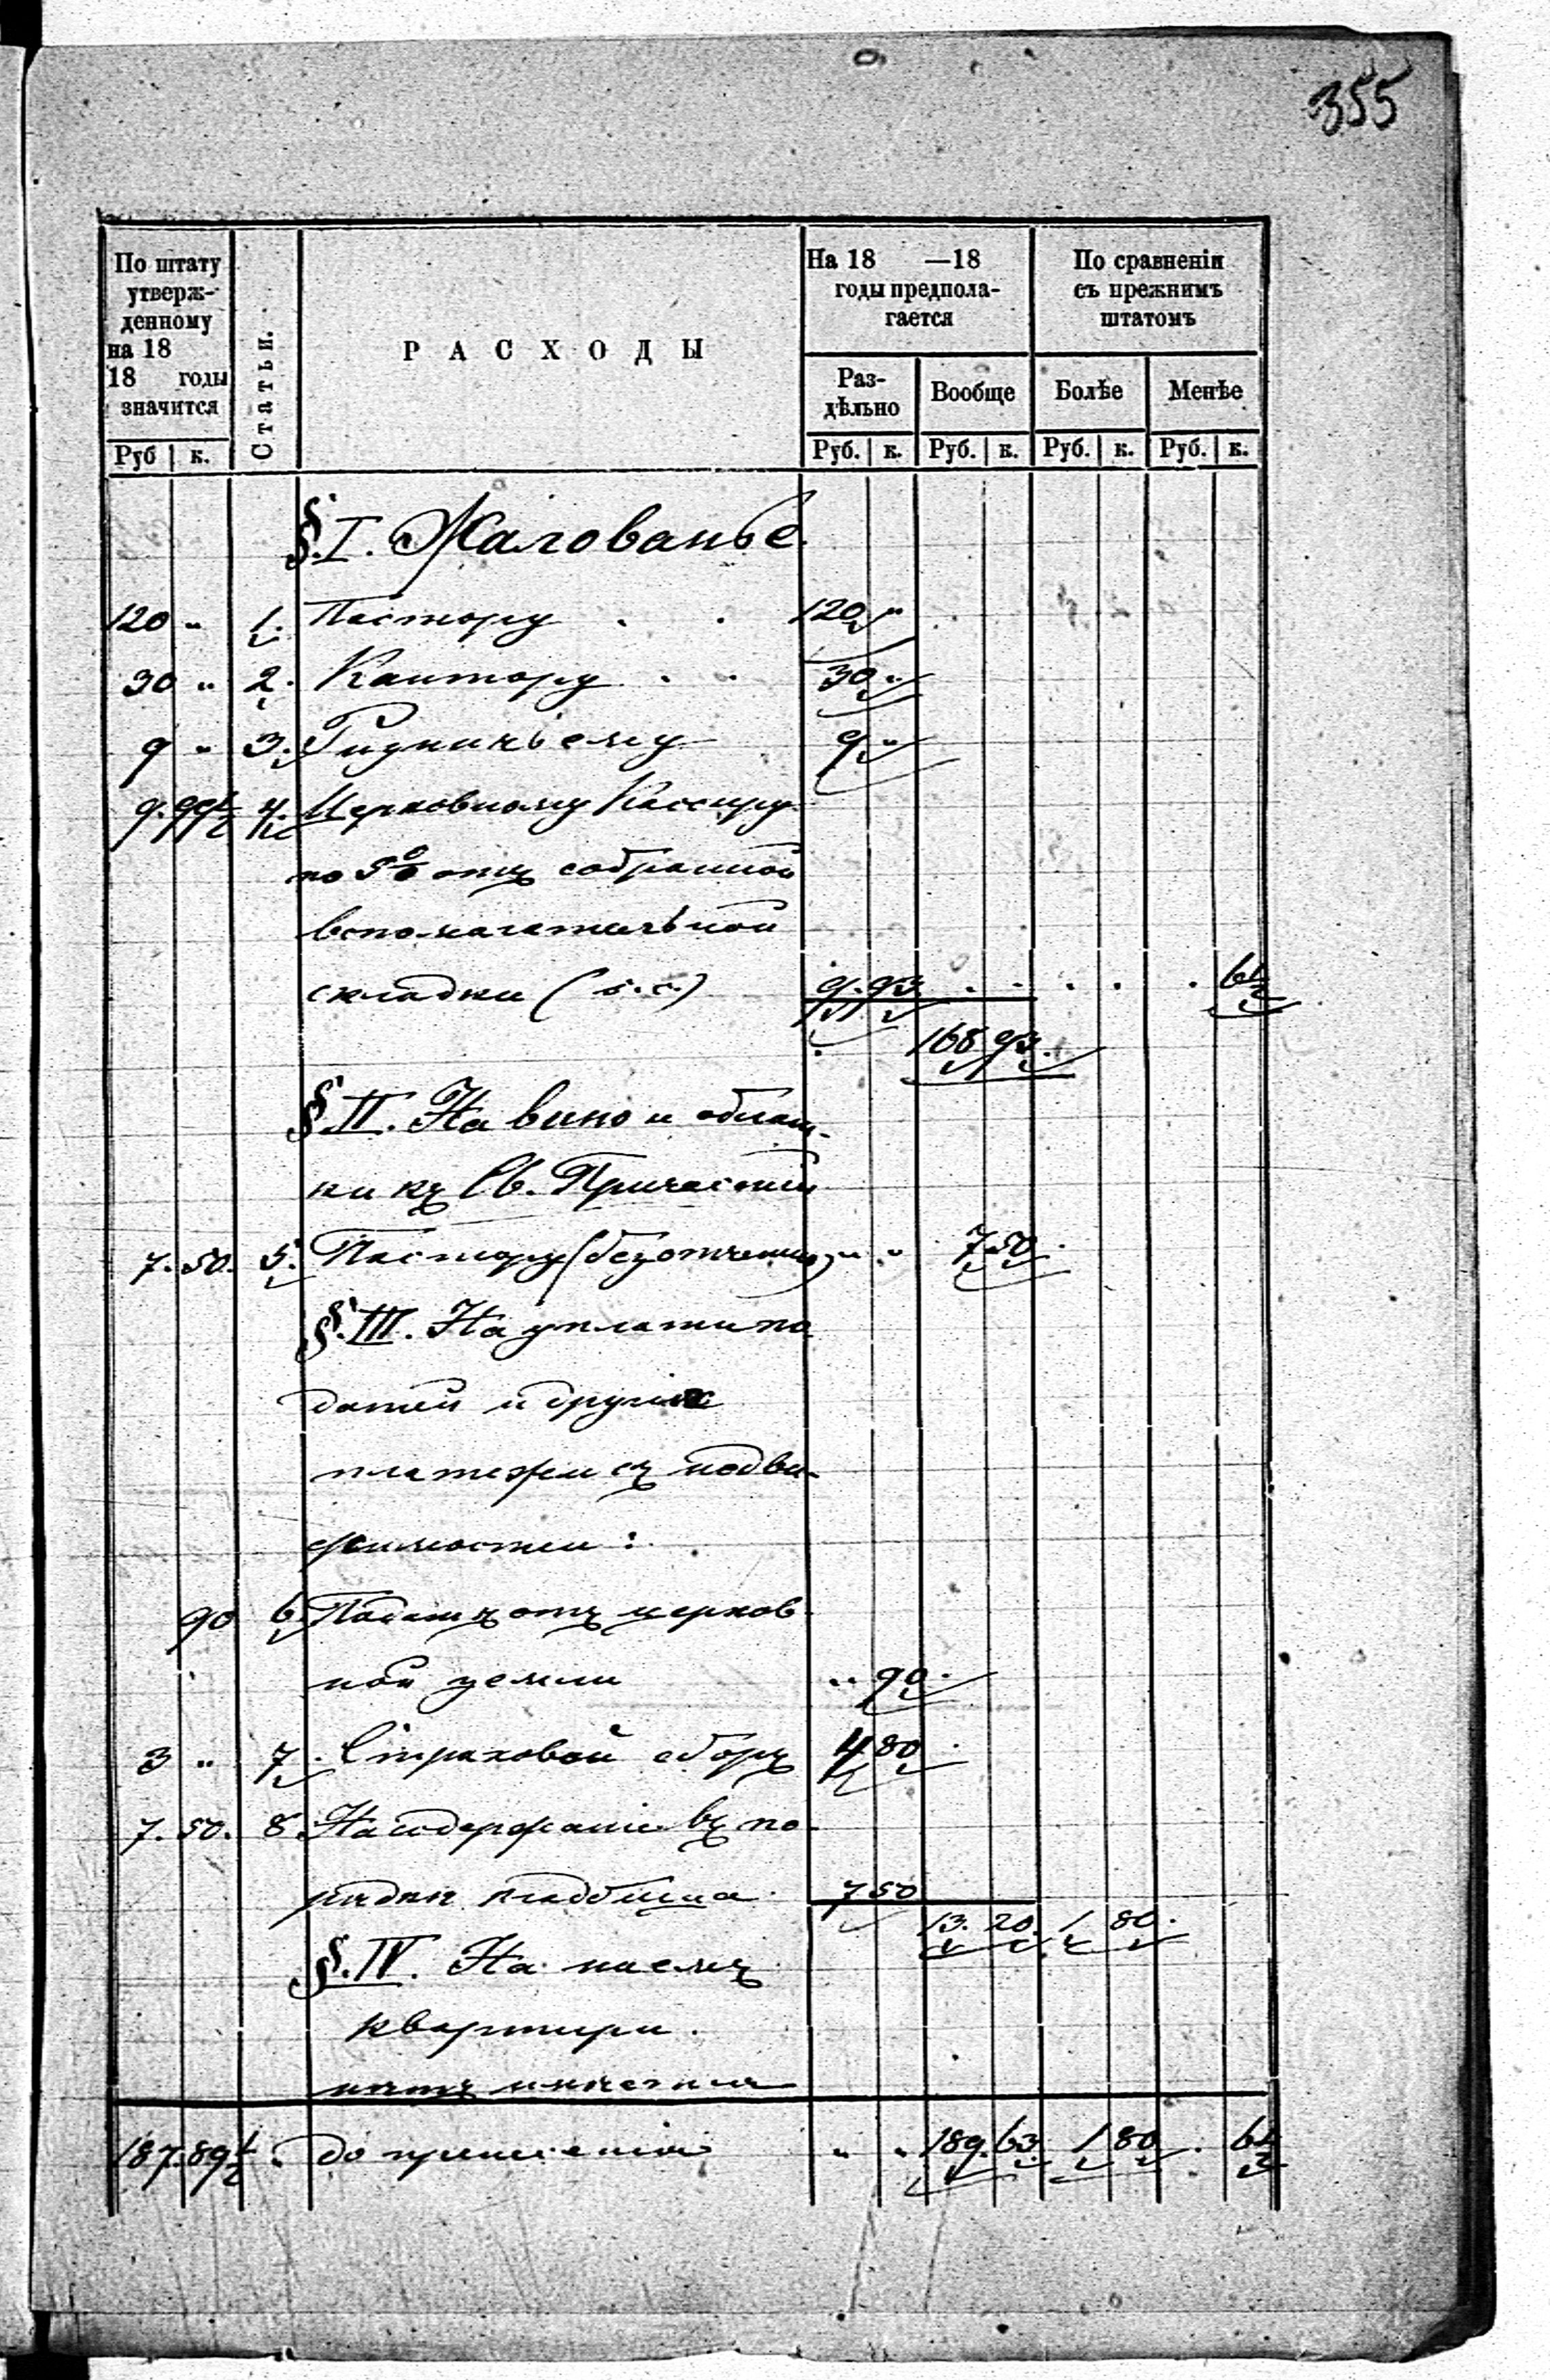 355
По штату утверж-денному на 18 18 годы значится
Статьи.
РАСХОДЫ
На 18 —18 годы предпола-гается
По сравненіи съ прежнимъ штатомъ
Раз-дѣльно Вообще Болѣе Менѣе
Руб к. Руб. к. Руб. к. Руб. к. Руб. к.
§.I. Жалованье.
120 " 1. Пастору . . 120 "
30 " 2. Кантору . . 30 "
9 " 3. 9 "
9. 99½ 4. Церковному Кассиру
по 5% отъ собранной
вспомагательной
складки (s.c.) 9. 93. . . . . . 6½
168 93.
§.II. На вино и облат-
ки къ Св. Причастію
7. 50. 5. Пастору (безотчетно) " " 7 50.
§.III. На уплату по
датей и другихъ
платежей съ недви-
жимостей:
90 6. Подать отъ церков-
ной земли " 90.
3 " 7. Страховой сборъ 4 80.
7. 50. 8. На содержаніе въ по-
рядкѣ кладбища 7 50
13. 20. 1 80.
§.IV. На наемъ
квартиры.
187. 89½ . До " " 189. 63 1 80 . 6½